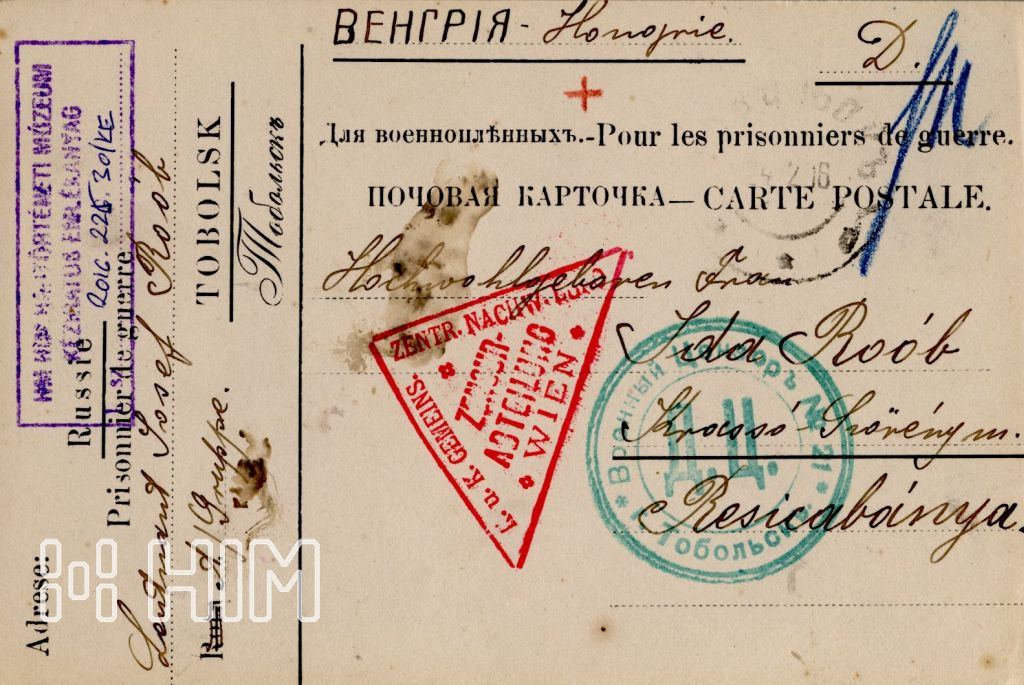 ВЕНГРІЯ - Hongrie.
D.
Для военноплѣнныхъ.-Pour les prisonniers de guerre.
ПОЧОВАЯ КАРТОЧКА—CARTE POSTALE.
Hochwohlgeboren Frau
Ida Roób
Krassó-Szörény m.
Resicabánya
K. u. K. GEMEINS.
ZENTR. NACHW.
ZENSUR-
ABTEILUNG
WIEN
Военный Цензоръ № 21
Д.Ц.
Тобольскъ
Adrese:
Russie
Prisonnier de guerre
Leutnant Josef Roób
TOBOLSK
Тобольскъ
Gruppe.
2016. 225. 30/KE
HIM